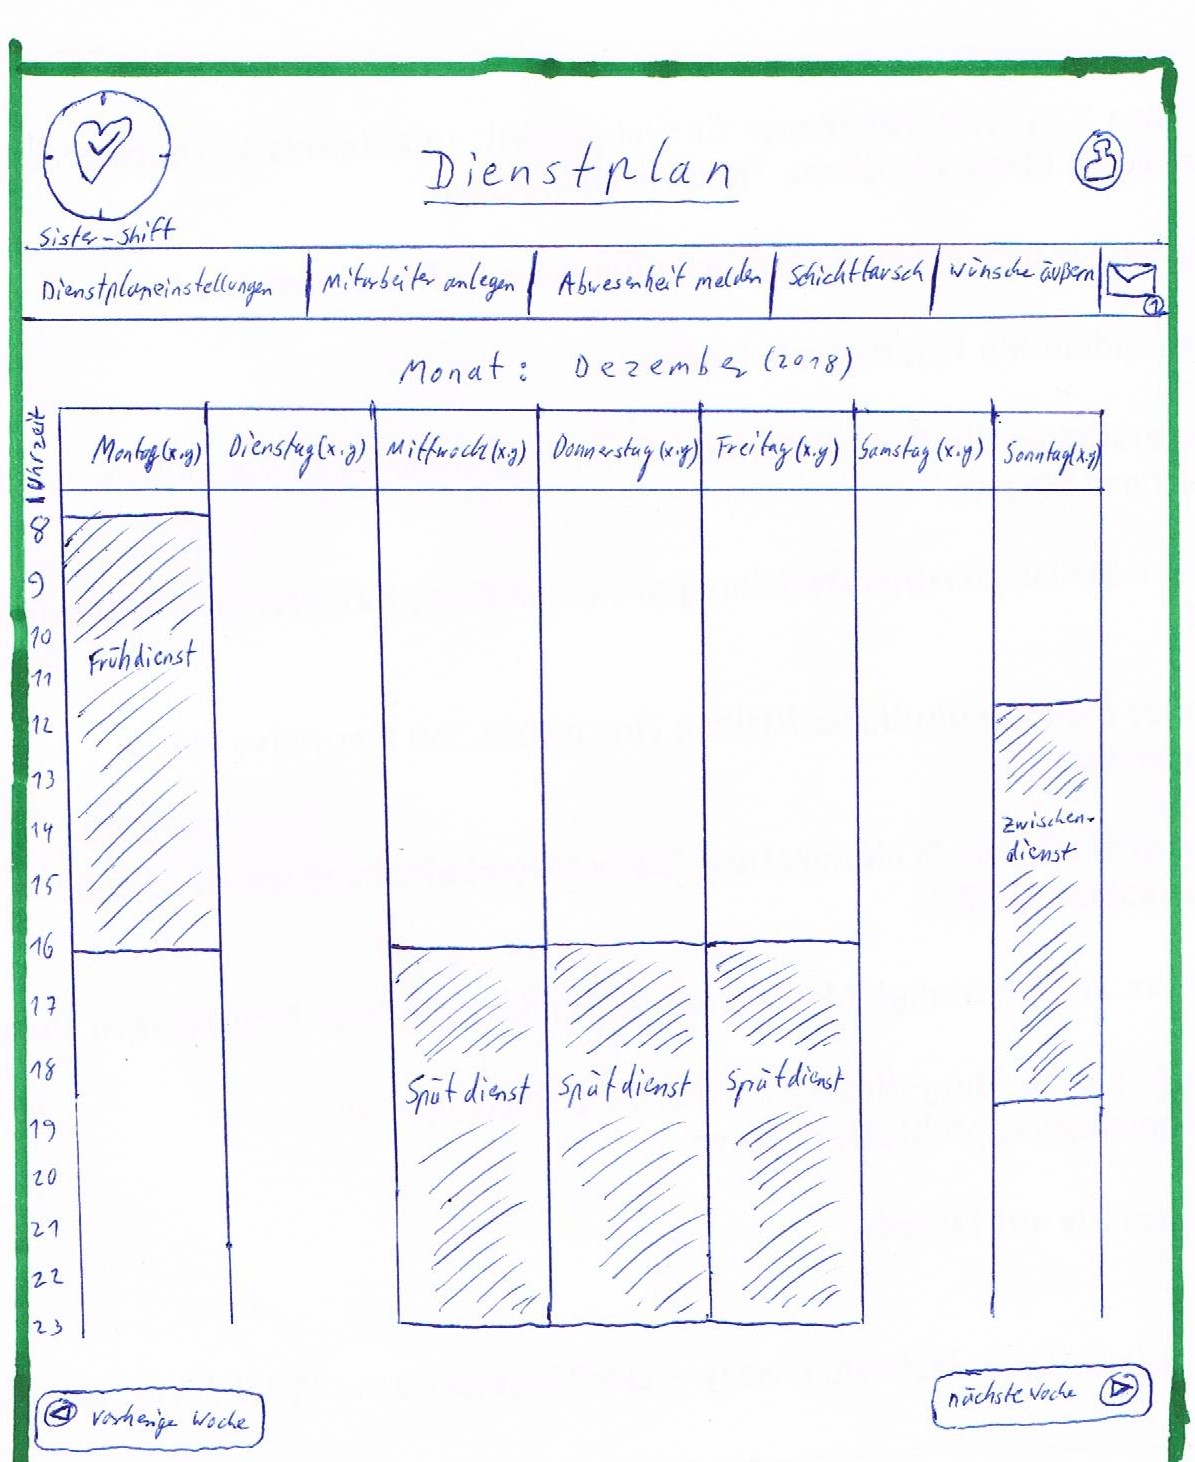 Dienstplan
Sister-Shift
Dienstplaneinstellungen
Mitarbeiter anlegen
Abwesenheit melden
Schichttausch
Wünsche äußern
1
Monat: Dezember (2018)
Uhrzeit
Montag (x.y)
Dienstag (x.y)
Mittwoch (x.y)
Donnerstag (x.y)
Freitag (x.y)
Samstag (x.y)
Sonntag (x.y)
8
9
10
Frühdienst
11
12
13
14
Zwischen-
dienst
15
16
17
18
Spätdienst
Spätdienst
Spätdienst
19
20
21
22
23
vorherige Woche
nächste Woche